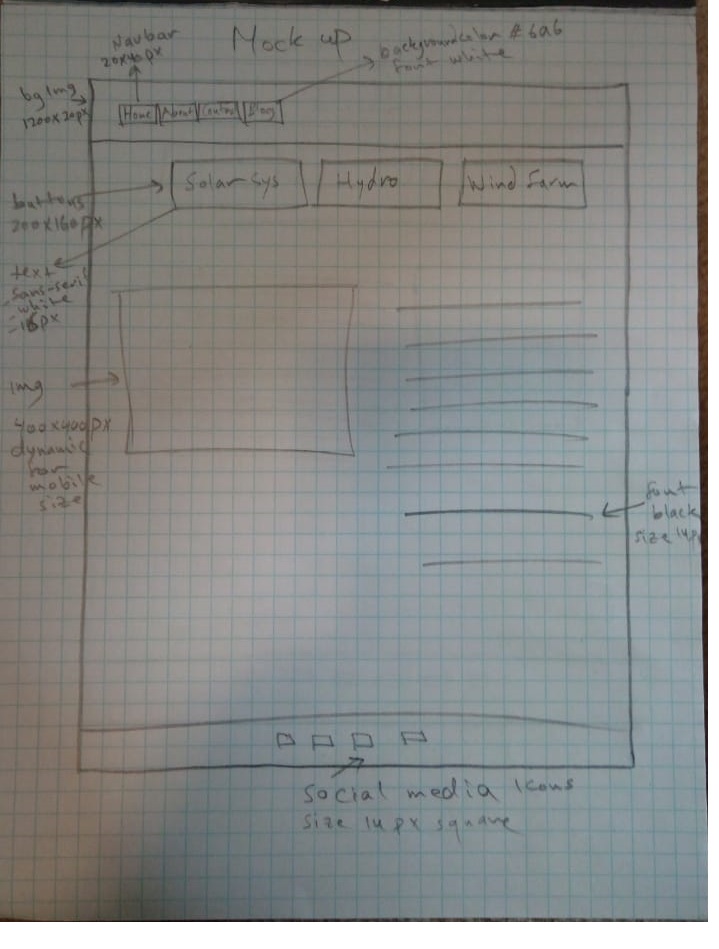 Mock up
Navbar
20x40px
backgroundcolor # 6a6
font white
bgImg
1200x20px
Home About Contact Blog
Solar Sys Hydro Wind Farm
buttons
200x160px
text
- Sans-serif
- white
- 16px
img
400x400px
dynamic
for
mobile
size
font
black
size 14px
Social media Icons
Size 14 px square